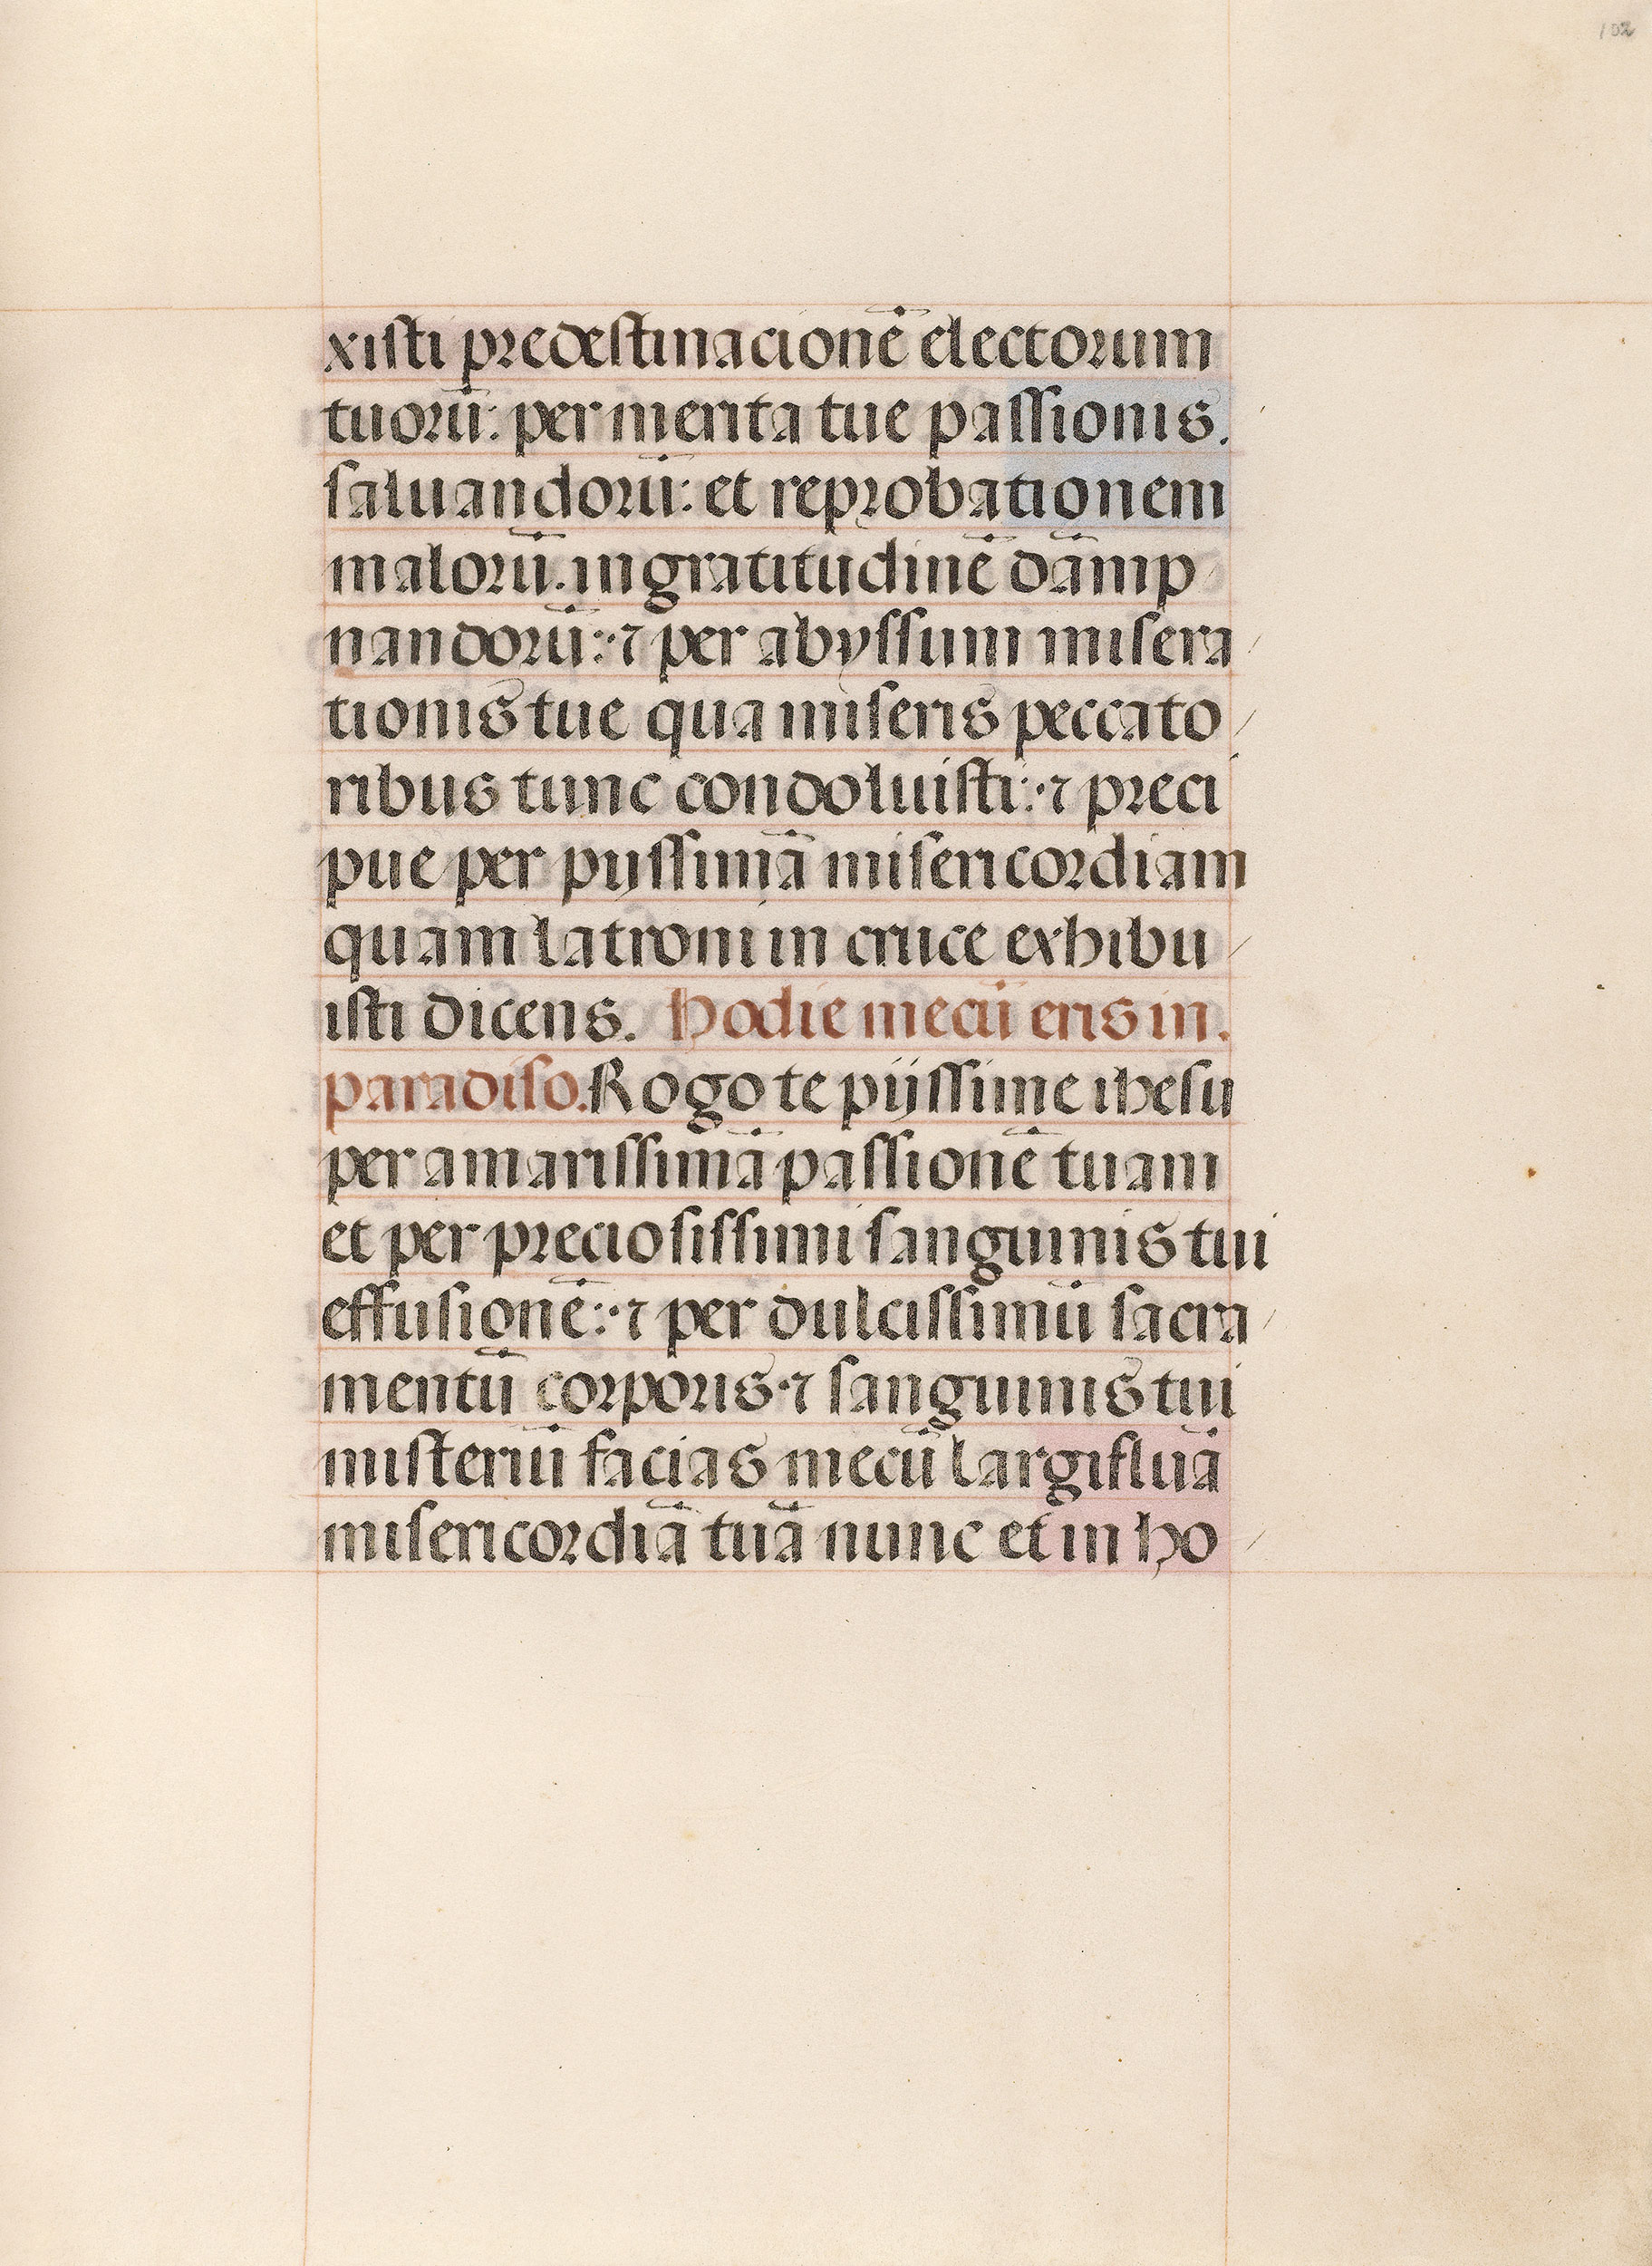 102
xisti predestinacionē electorum
tuorū: per merita tue passionis.
saluandorū: et reprobationem
malorū. ingratitudinē dāmp
nandorū:·⁊ per abyssum misera/
tionis tue qua miseris peccato/
ribus tunc condoluisti:·⁊ preci
pue per pijssimā misericordiam
quam latroni in cruce exhibu/
isti dicens. Hodie mecū eris in.
paradiso. Rogo te pijssime ihesu
per amarissimā passionē tuam
et per preciosissimi sanguinis tui
effusionē:·⁊ per dulcissimū sacra/
mentū corporis·⁊ sanguinis tui
misteriū facias mecū largifluā
misericordiā tuā nunc et in ho/